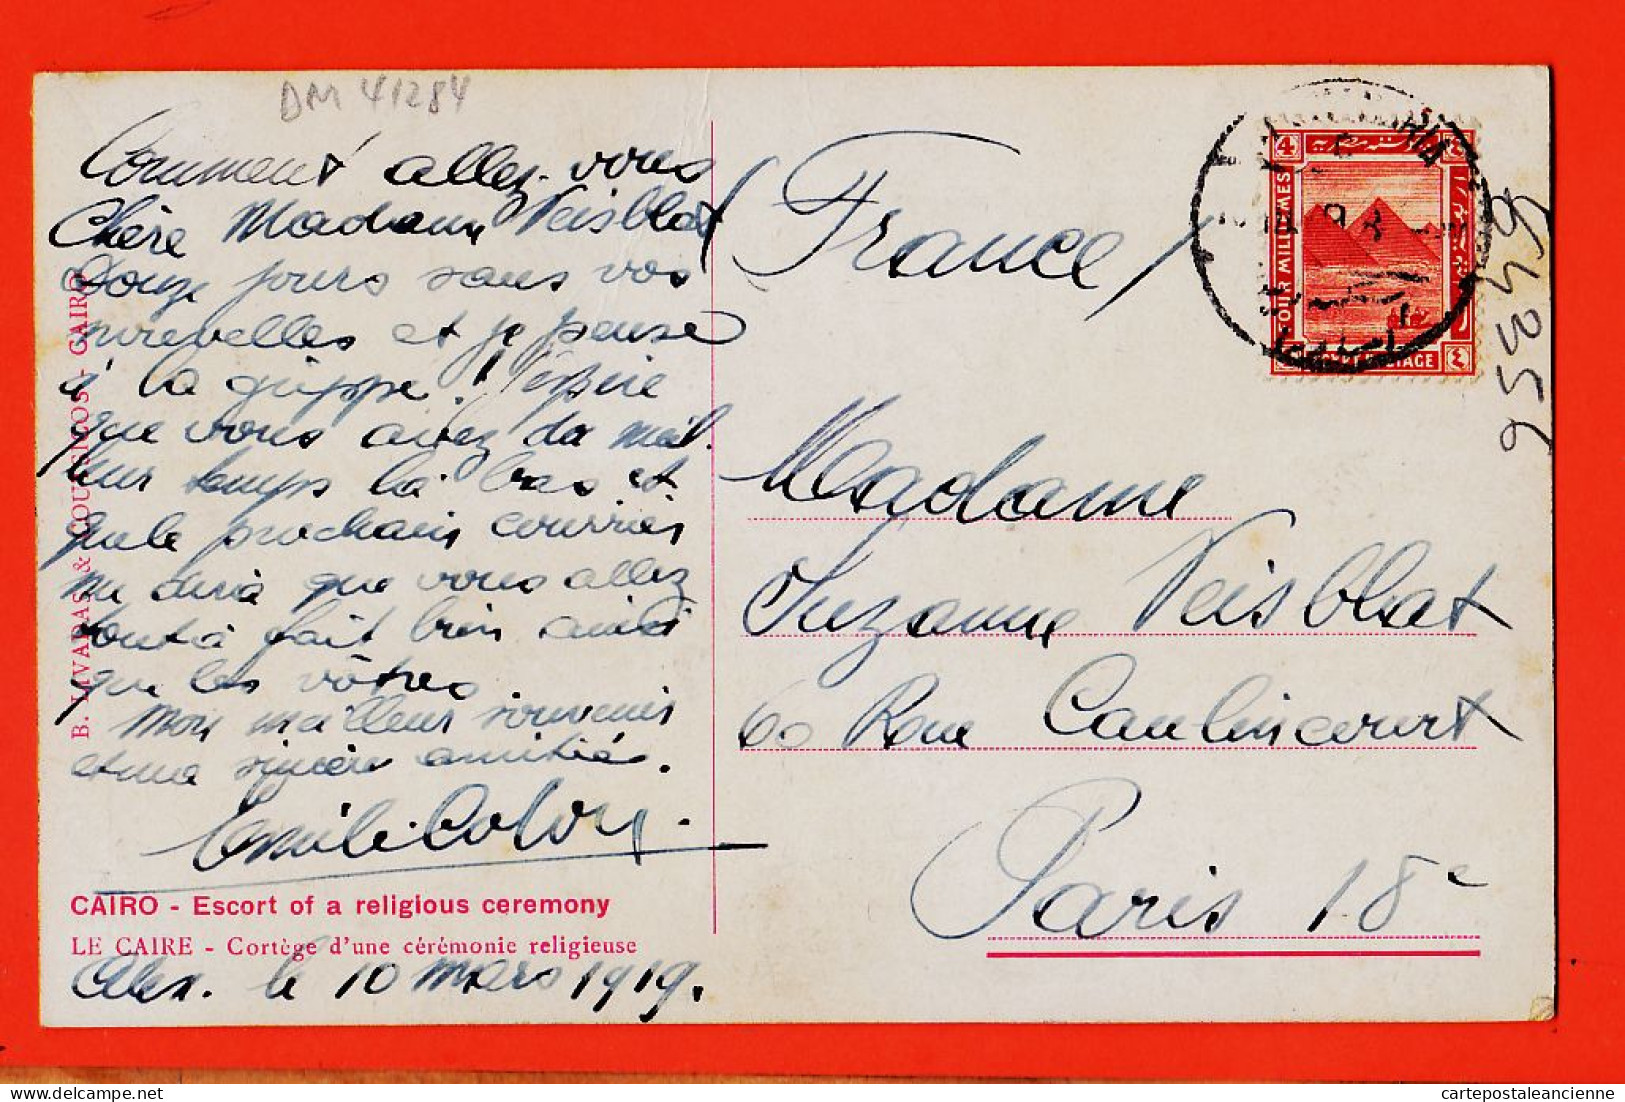 DM 41284
Comment allez-vous
Chère Madame Veisblat
Douze jours sans vos
nouvelles et je pense
à la grippe! J'espère
que vous avez du meil.
leur temps là bas et
que le prochain courrier
me dira que vous allez
tout à fait bien ainsi
que les vôtres.
Mon meilleur souvenir
et ma sincère amitié.
Emile Colon
CAIRO - Escort of a religious ceremony
LE CAIRE - Cortège d'une cérémonie religieuse
Alex. le 10 mars 1919.
B. LIVADAS & COUTSICOS - CAIRO
(France)
Madame
Suzanne Veisblat
60 Rue Caulincourt
Paris 18e
4
FOUR MILLIEMES
EGYPT POSTAGE
٤
cartepostaleancienne.com